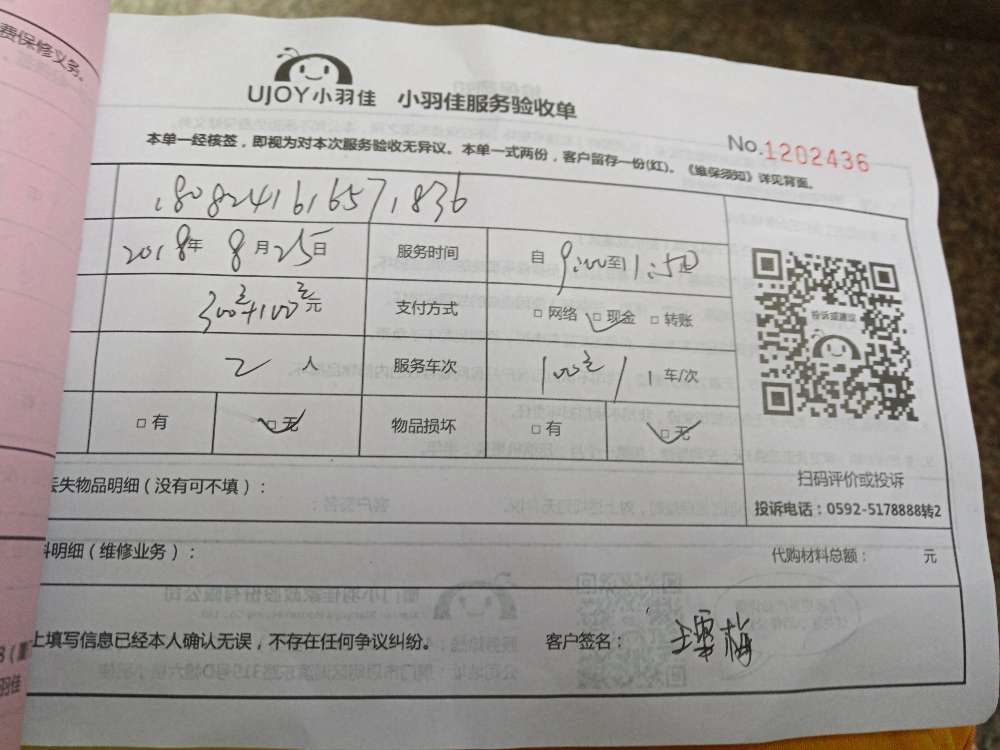 费保修义务。
UJOY小羽佳 小羽佳服务验收单
No.1202436
本单一经核签，即视为对本次服务验收无异议。本单一式两份，客户留存一份(红)。《维保须知》详见背面。
180824161657,836
2018年 8月25日 服务时间 自9:00至1:50
300元+100元元 支付方式 □网络 ☑现金 □转账
投诉或建议
2人 服务车次 100元/1车/次
□有 ☑无 物品损坏 □有 ☑无
扫码评价或投诉
丢失物品明细（没有可不填）：
投诉电话：0592-5178888转2
料明细（维修业务）： 代购材料总额： 元
上填写信息已经本人确认无误，不存在任何争议纠纷。 客户签名：
羽佳